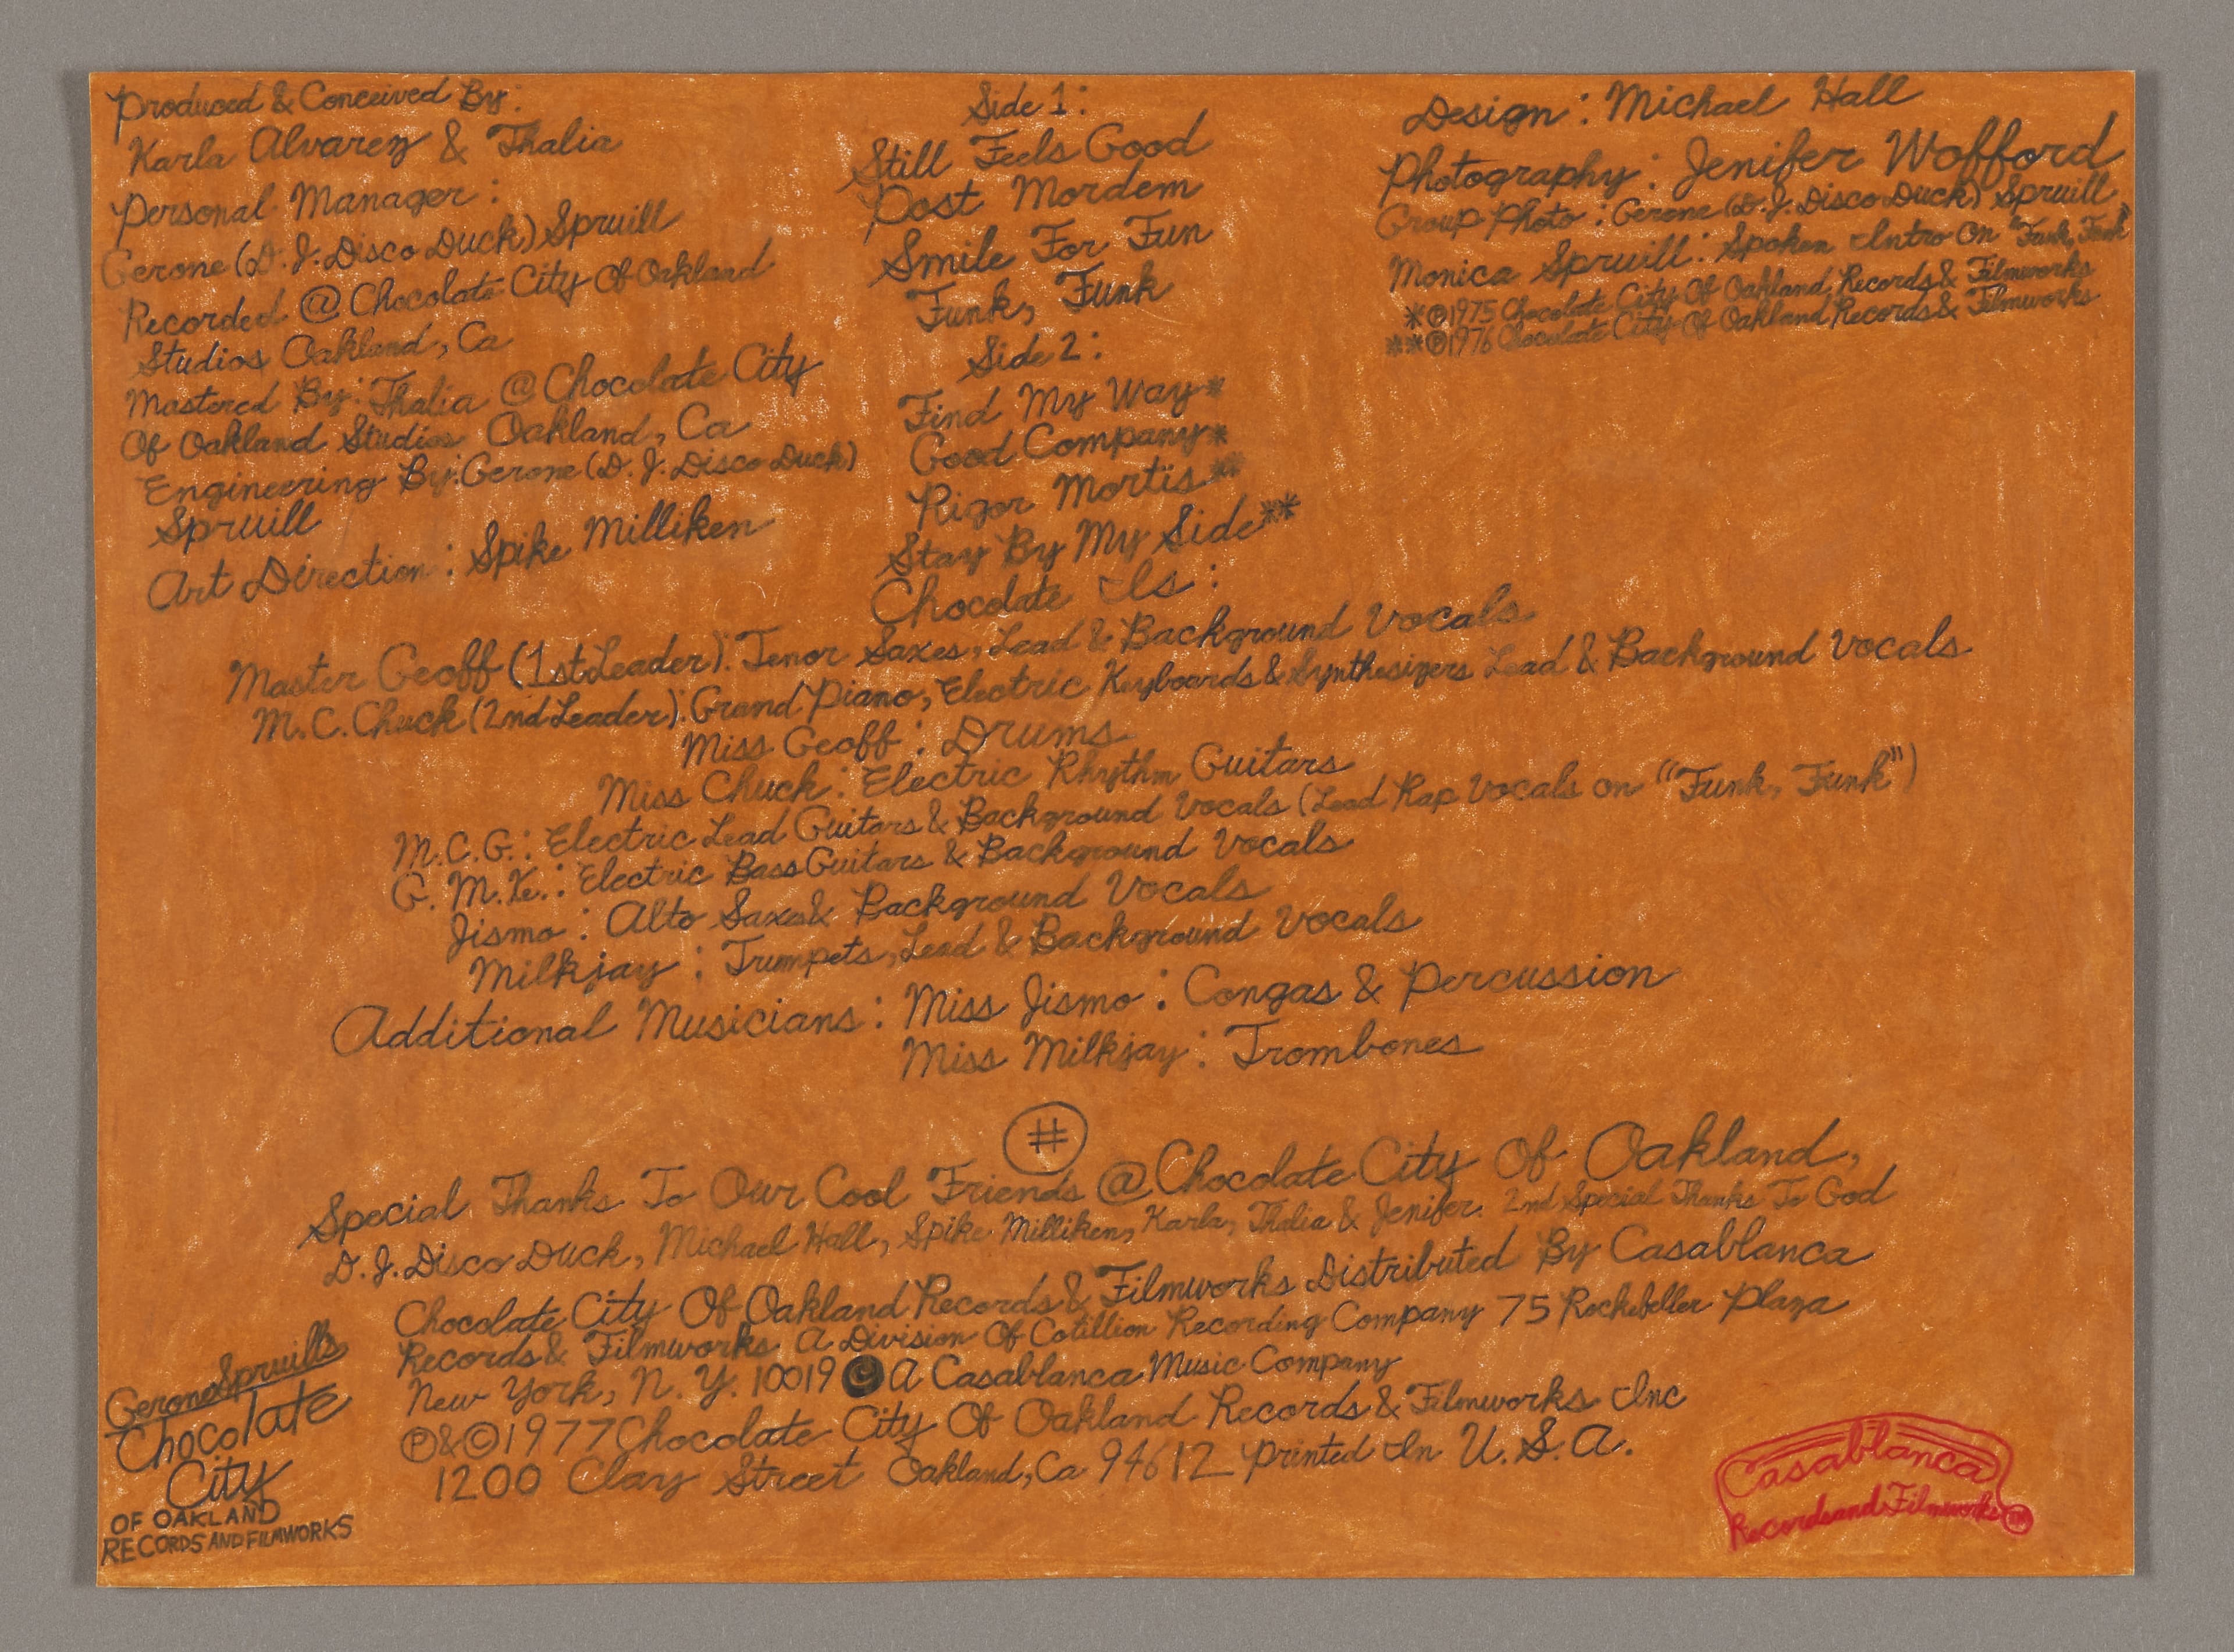 Produced & Conceived By:
Karla Alvarez & Thalia
Personal Manager:
Gerone (D.J. Disco Duck) Spruill
Recorded @ Chocolate City Of Oakland
Studios Oakland, Ca
Mastered By: Thalia @ Chocolate City
Of Oakland Studios Oakland, Ca
Engineering By: Gerone (D.J. Disco Duck)
Spruill
Art Direction: Spike Milliken
Side 1:
Still Feels Good
Post Mordem
Smile For Fun
Funk, Funk
Side 2:
Find My Way*
Good Company*
Rigor Mortis**
Stay By My Side**
Design: Michael Hall
Photography: Jenifer Wofford
Group Photo: Gerone (D.J. Disco Duck) Spruill
Monica Spruill: Spoken Intro On "Funk, Funk"
*℗1975 Chocolate City Of Oakland Records & Filmworks
**℗1976 Chocolate City Of Oakland Records & Filmworks
Chocolate Is:
Master Geoff (1st Leader): Tenor Saxes, Lead & Background Vocals
M.C. Chuck (2nd Leader): Grand Piano, Electric Keyboards & Synthesizers Lead & Background Vocals
Miss Geoff: Drums
Miss Chuck: Electric Rhythm Guitars
M.C.G.: Electric Lead Guitars & Background Vocals (Lead Rap Vocals on "Funk, Funk")
G.M.Ke.: Electric Bass Guitars & Background Vocals
Jismo: Alto Saxes & Background Vocals
Milkjay: Trumpets, Lead & Background Vocals
Additional Musicians: Miss Jismo: Congas & Percussion
Miss Milkjay: Trombones
#
Special Thanks To Our Cool Friends @ Chocolate City Of Oakland,
D.J. Disco Duck, Michael Hall, Spike Milliken, Karla, Thalia & Jenifer. 2nd Special Thanks To God
Chocolate City Of Oakland Records & Filmworks Distributed By Casablanca
Records & Filmworks A Division Of Cotillion Recording Company 75 Rockefeller Plaza
New York, N.Y. 10019 A Casablanca Music Company
℗&©1977 Chocolate City Of Oakland Records & Filmworks Inc
1200 Clay Street Oakland, Ca 94612 Printed In U.S.A.
Gerone Spruill's
Chocolate
City
OF OAKLAND
RECORDS AND FILMWORKS
Casablanca
Records and Filmworks TM